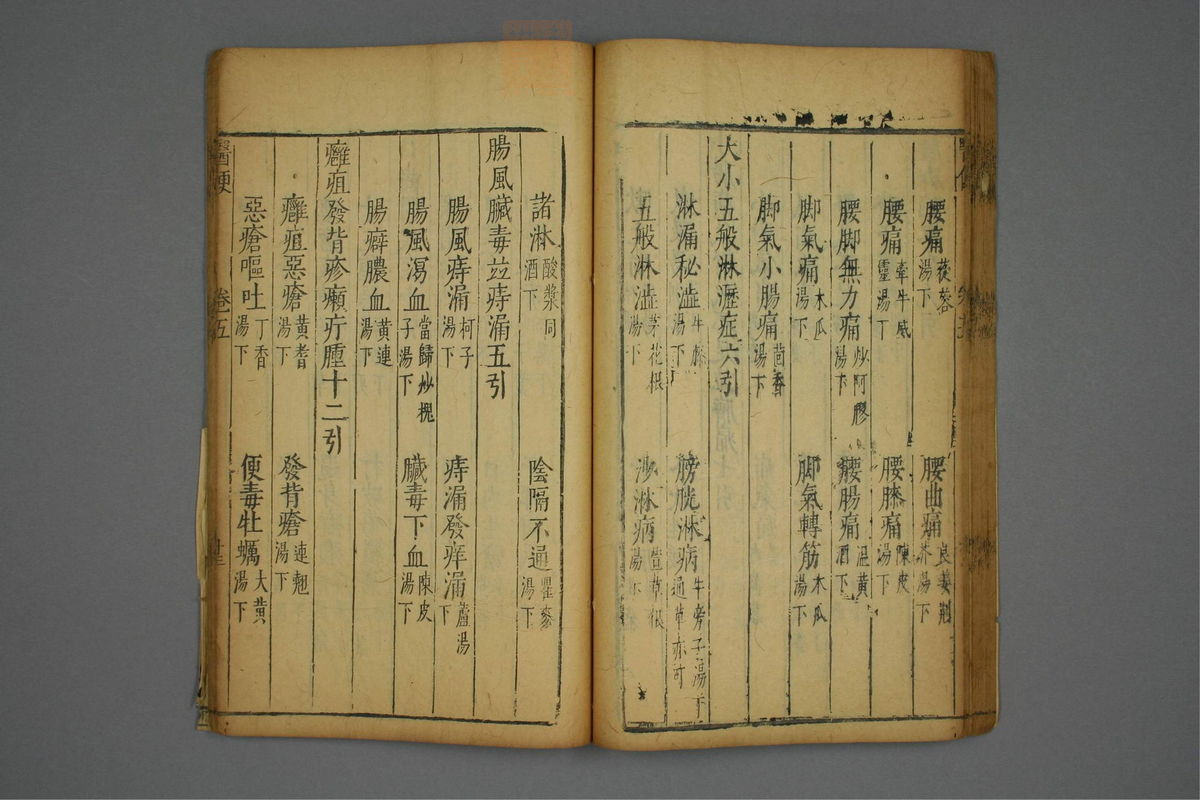 腰痛 蓯蓉湯下 腰曲痛 良姜荊芥湯下
腰痛 牽牛威靈湯下 腰膝痛 陳皮湯下
腰脚無力痛 炒阿膠湯下 腰腸痛 温黄酒下
脚氣痛 木瓜湯下 脚氣轉筋 木瓜湯下
脚氣小腸痛 茴香湯下
大小五般淋瀝症六引
淋漏秘澁 牛膝湯下 膀胱淋病 牛旁子湯下通草亦可
五般淋澁 茅花根湯下 沙淋病 萱草根湯下
諸淋 酸漿同酒下 陰隔不通 瞿麥湯下
腸風臟毒並痔漏五引
腸風痔漏 柯子湯下 痔漏發痒漏 蘆湯下
腸風瀉血 當歸炒槐子湯下 臟毒下血 陳皮湯下
腸癖膿血 黄連湯下
癰疽發背疹癩疔腫十二引
癰疽惡瘡 黄耆湯下 發背瘡 連翹湯下
惡瘡嘔吐 丁香湯下 便毒牡蠣 大黄湯下
醫便 卷五